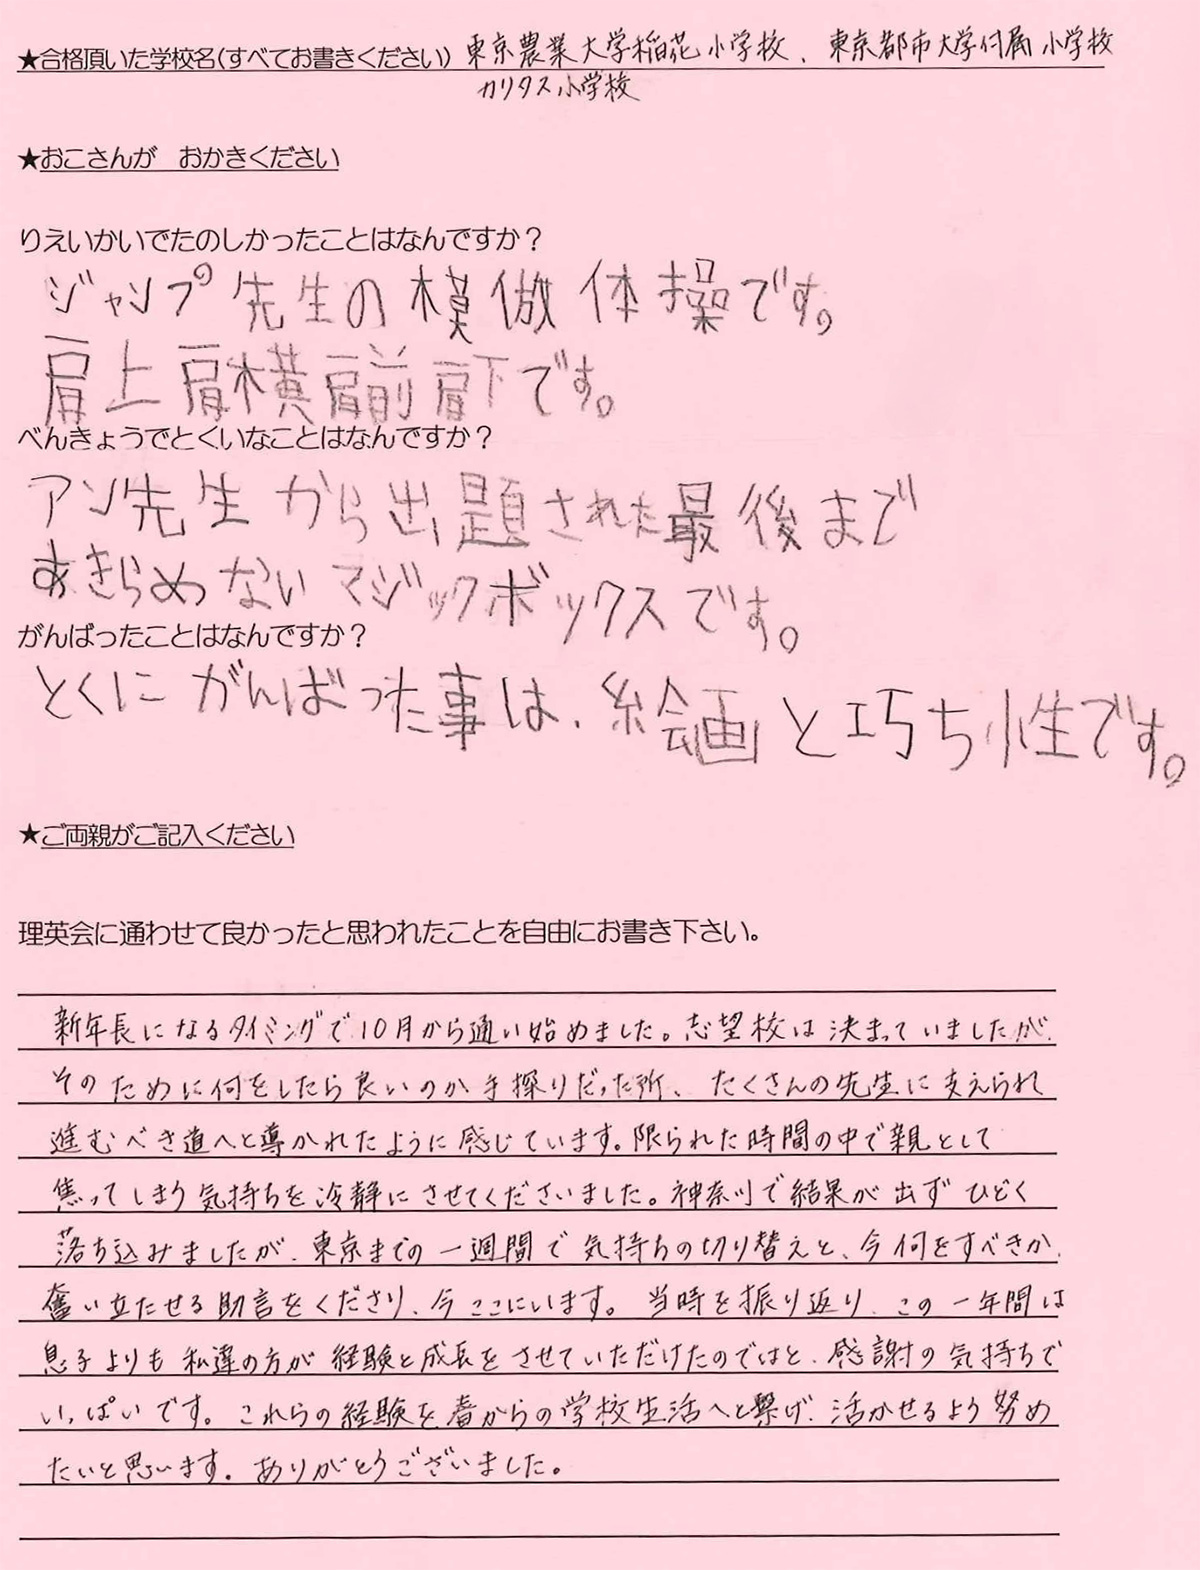 ★合格頂いた学校名(すべてお書きください) 東京農業大学稲花小学校、東京都市大学付属小学校
カリタス小学校
★おこさんが　おかきください
りえいかいでたのしかったことはなんですか？
ジャンプ先生の模倣体操です。
肩上肩横肩前肩下です。
べんきょうでとくいなことはなんですか？
アン先生から出題された最後まで
あきらめないマジックボックスです。
がんばったことはなんですか？
とくにがんばった事は、絵画と巧ち性です。
★ご両親がご記入ください
理英会に通わせて良かったと思われたことを自由にお書き下さい。
新年長になるタイミングで10月から通い始めました。志望校は決まっていましたが、
そのために何をしたら良いのか手探りだった所、たくさんの先生に支えられ
進むべき道へと導かれたように感じています。限られた時間の中で親として
焦ってしまう気持ちを冷静にさせてくださいました。神奈川で結果が出ずひどく
落ち込みましたが、東京までの一週間で気持ちの切り替えと、今何をすべきか、
奮い立たせる助言をくださり、今ここにいます。当時を振り返り、この一年間は
息子よりも私達の方が経験と成長をさせていただけたのではと、感謝の気持ちで
いっぱいです。これらの経験を春からの学校生活へと繋げ、活かせるよう努め
たいと思います。ありがとうございました。